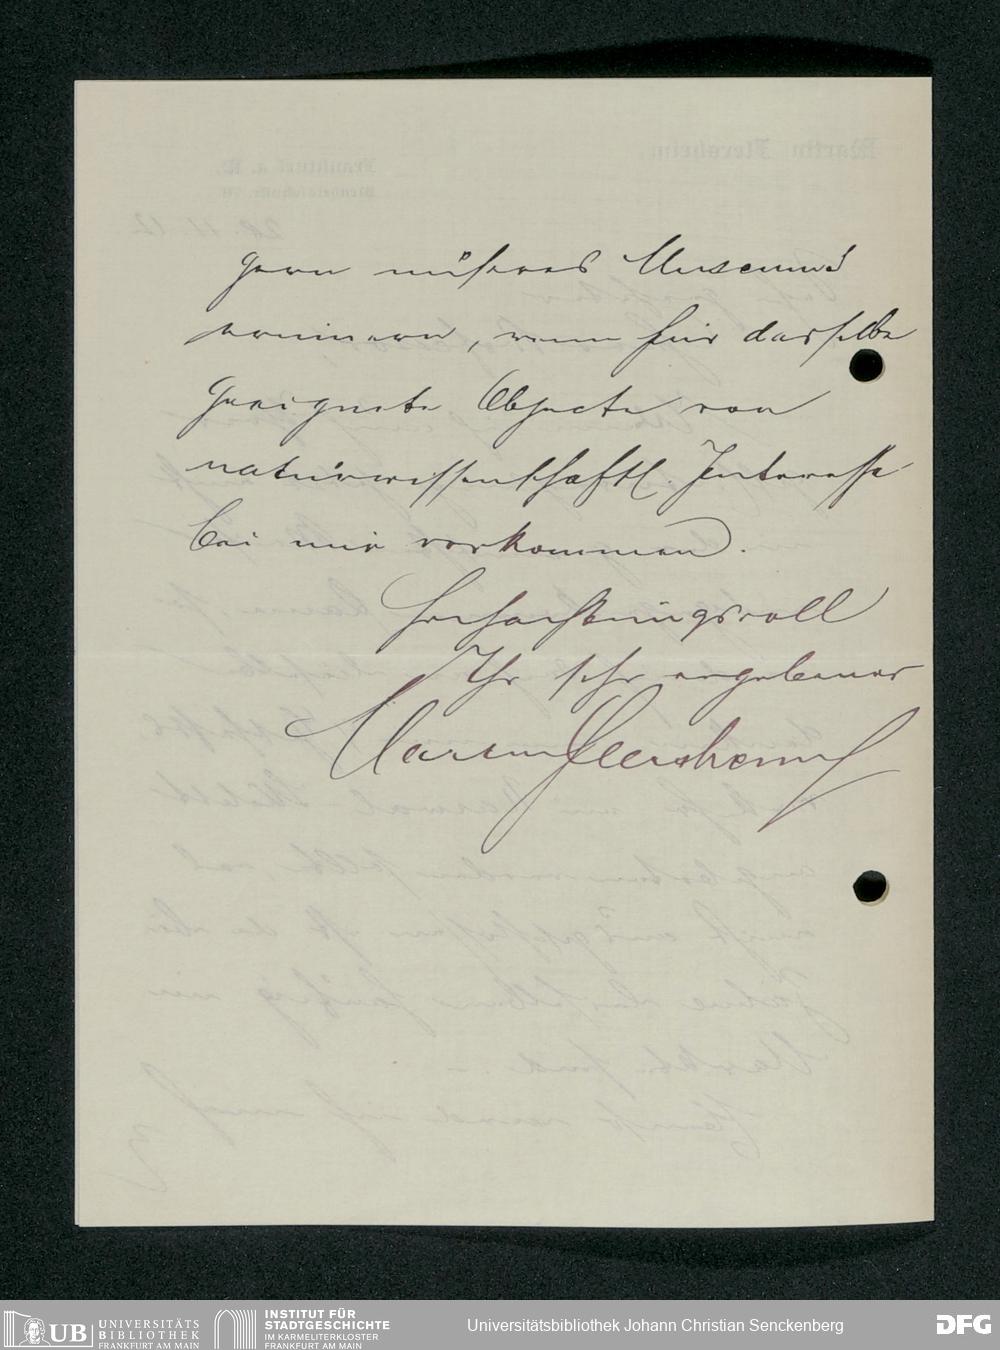 gern unseres Museums
erinnern, wenn für dasselbe
geeignete Objecte von
naturwissenschaftl. Interesse
bei mir vorkommen.
Hochachtungsvoll
Ihr sehr ergebener
Martin Flersheim
UB UNIVERSITÄTS
BIBLIOTHEK
FRANKFURT AM MAIN
INSTITUT FÜR
STADTGESCHICHTE
IM KARMELITERKLOSTER
FRANKFURT AM MAIN
Universitätsbibliothek Johann Christian Senckenberg
DFG